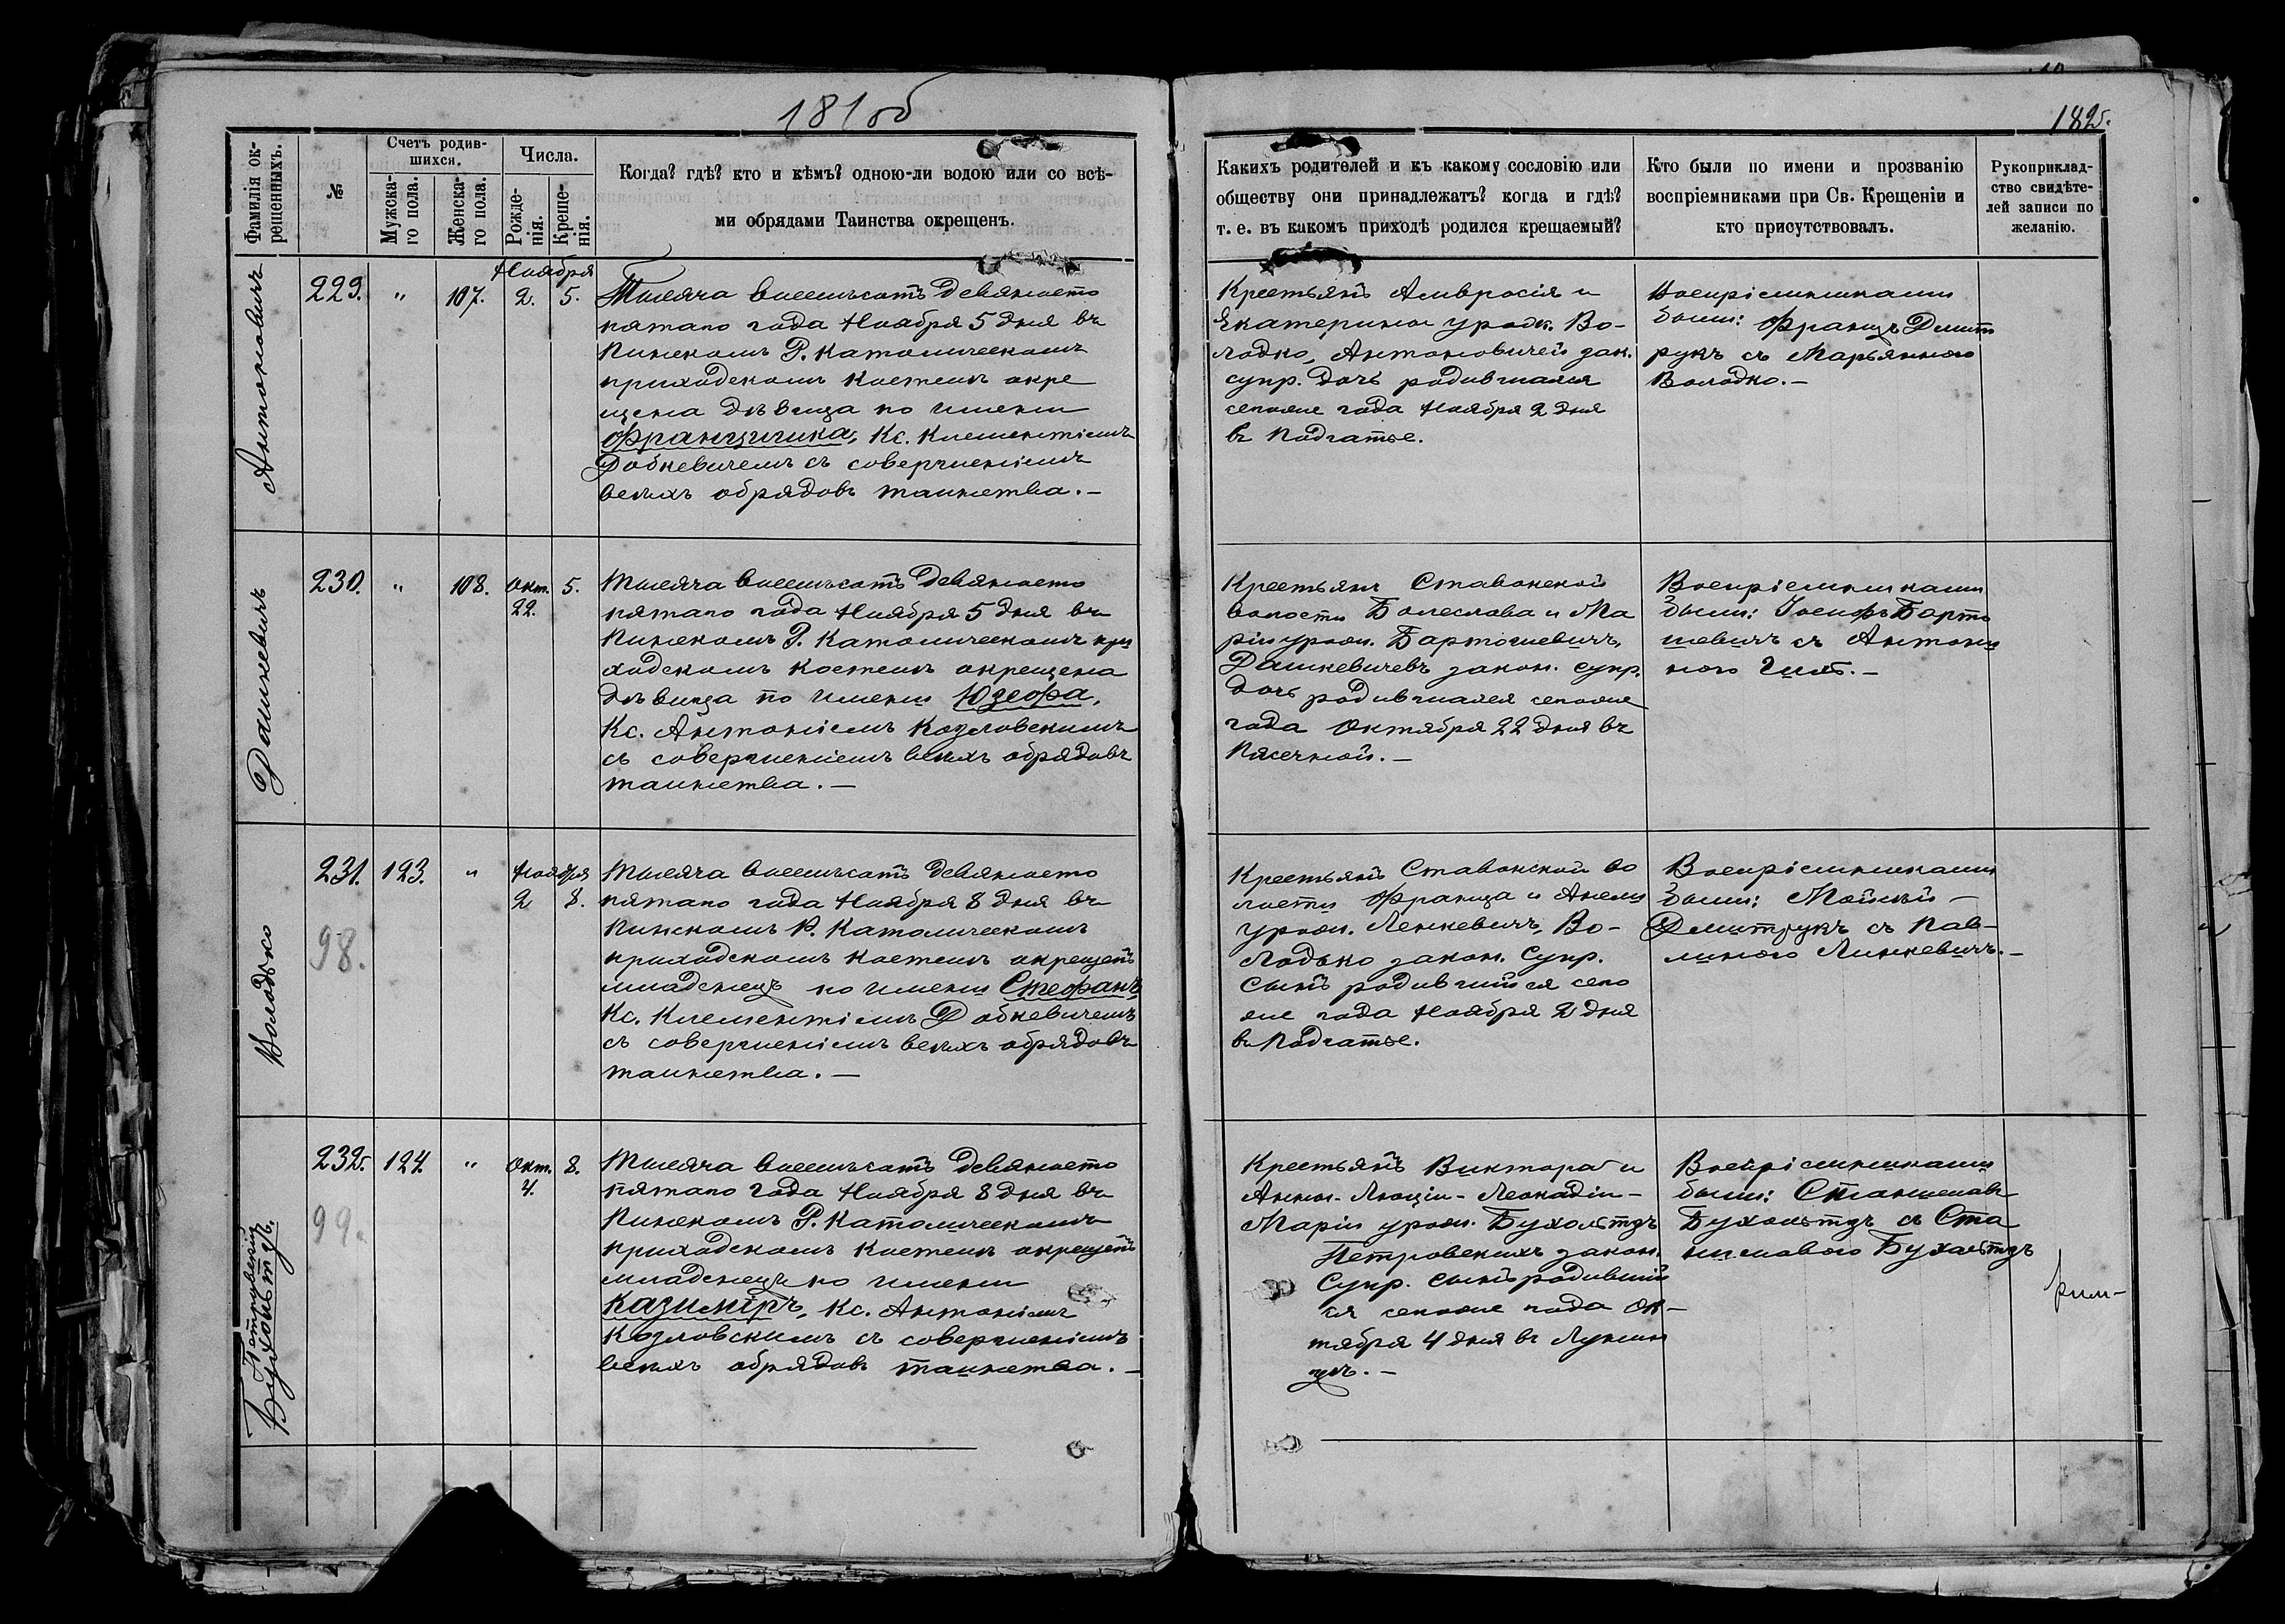 181 об
182.
Фамилія ок-
рещенныхъ.
№
Счетъ родив-
шихся.
Мужска-
го пола.
Женска-
го пола.
Числа.
Рожде-
нія.
Креще-
нія.
Когда? гдѣ? кто и кѣмъ? одною-ли водою или со всѣ-
ми обрядами Таинства окрещенъ.
Какихъ родителей и къ какому сословію или
обществу они принадлежатъ? когда и гдѣ?
т. е. въ какомъ приходѣ родился крещаемый?
Кто были по имени и прозванію
воспріемниками при Св. Крещеніи и
кто присутствовалъ.
Рукоприклад-
ство свидѣте-
лей записи по
желанію.
Антоновичъ
229.
"
107.
Ноября
2. 5.
Тысяча восемьсотъ девяносто
пятаго года Ноября 5 дня въ
Пинскомъ Р. Католическомъ
приходскомъ костелѣ окре
щена дѣвица по имени
Францишка, Кс. Клементіемъ
Добкевичемъ съ совершеніемъ
всѣхъ обрядовъ таинства. —
Крестьянъ Амвросія и
Екатерины урожд. Во-
лодко, Антоновичей зак.
супр. дочь родившаяся
сегоже года Ноября 2 дня
въ Подгатье.
Воспріемниками
были: Францъ Дмит
рукъ съ Марьянною
Володко. —
Дашкевичъ
230.
"
108.
Окт.
22.
5.
Тысяча восемьсотъ девяносто
пятаго года Ноября 5 дня въ
Пинскомъ Р. Католическомъ при
ходскомъ костелѣ окрещена
дѣвица по имени Юзефа,
Кс. Антоніемъ Козловскимъ
съ совершеніемъ всѣхъ обрядовъ
таинства. —
Крестьянъ Ставокской
волости Болеслава и Ма
ріи урожд. Бартошевичъ,
Дашкевичевъ закон. супр.
дочь родившаяся сегоже
года Октября 22 дня въ
Пясечной. —
Воспріемниками
были: Іосифъ Барто
шевичъ съ Антони
ною
Володько
231.
98.
123.
"
Ноября
2 8.
Тысяча восемьсотъ девяносто
пятаго года Ноября 8 дня въ
Пинскомъ Р. Католическомъ
приходскомъ костелѣ окрещенъ
младенецъ по имени Стефанъ
Кс. Клементіемъ Добкевичемъ
съ совершеніемъ всѣхъ обрядовъ
таинства. —
Крестьянъ Ставокской во
лости Франца и Анели
урожд. Ленкевичъ, Во-
лодько закон. супр.
сынъ родившійся сего
же года Ноября 2 дня
въ Подгатье.
Воспріемниками
были:
Дмитрукъ съ Пав-
линою Линкевичъ. —
Петровскій
Бухольтдъ.
232.
99.
124.
"
Окт.
4.
8.
Тысяча восемьсотъ девяносто
пятаго года Ноября 8 дня въ
Пинскомъ Р. Католическомъ
приходскомъ костелѣ окрещенъ
младенецъ по имени
Казиміръ, Кс. Антоніемъ
Козловскимъ съ совершеніемъ
всѣхъ обрядовъ таинства. —
Крестьянъ Виктора и
Анны-Люціи-Леокадіи-
Маріи урожд. Бухольтдъ
Петровскихъ закон.
супр. сынъ родившій
ся сегоже года Ок-
тября 4 дня въ Лунин
цѣ. —
Воспріемниками
были: Станиславъ
Бухольтдъ съ Ста
ниславою Бухольтдъ